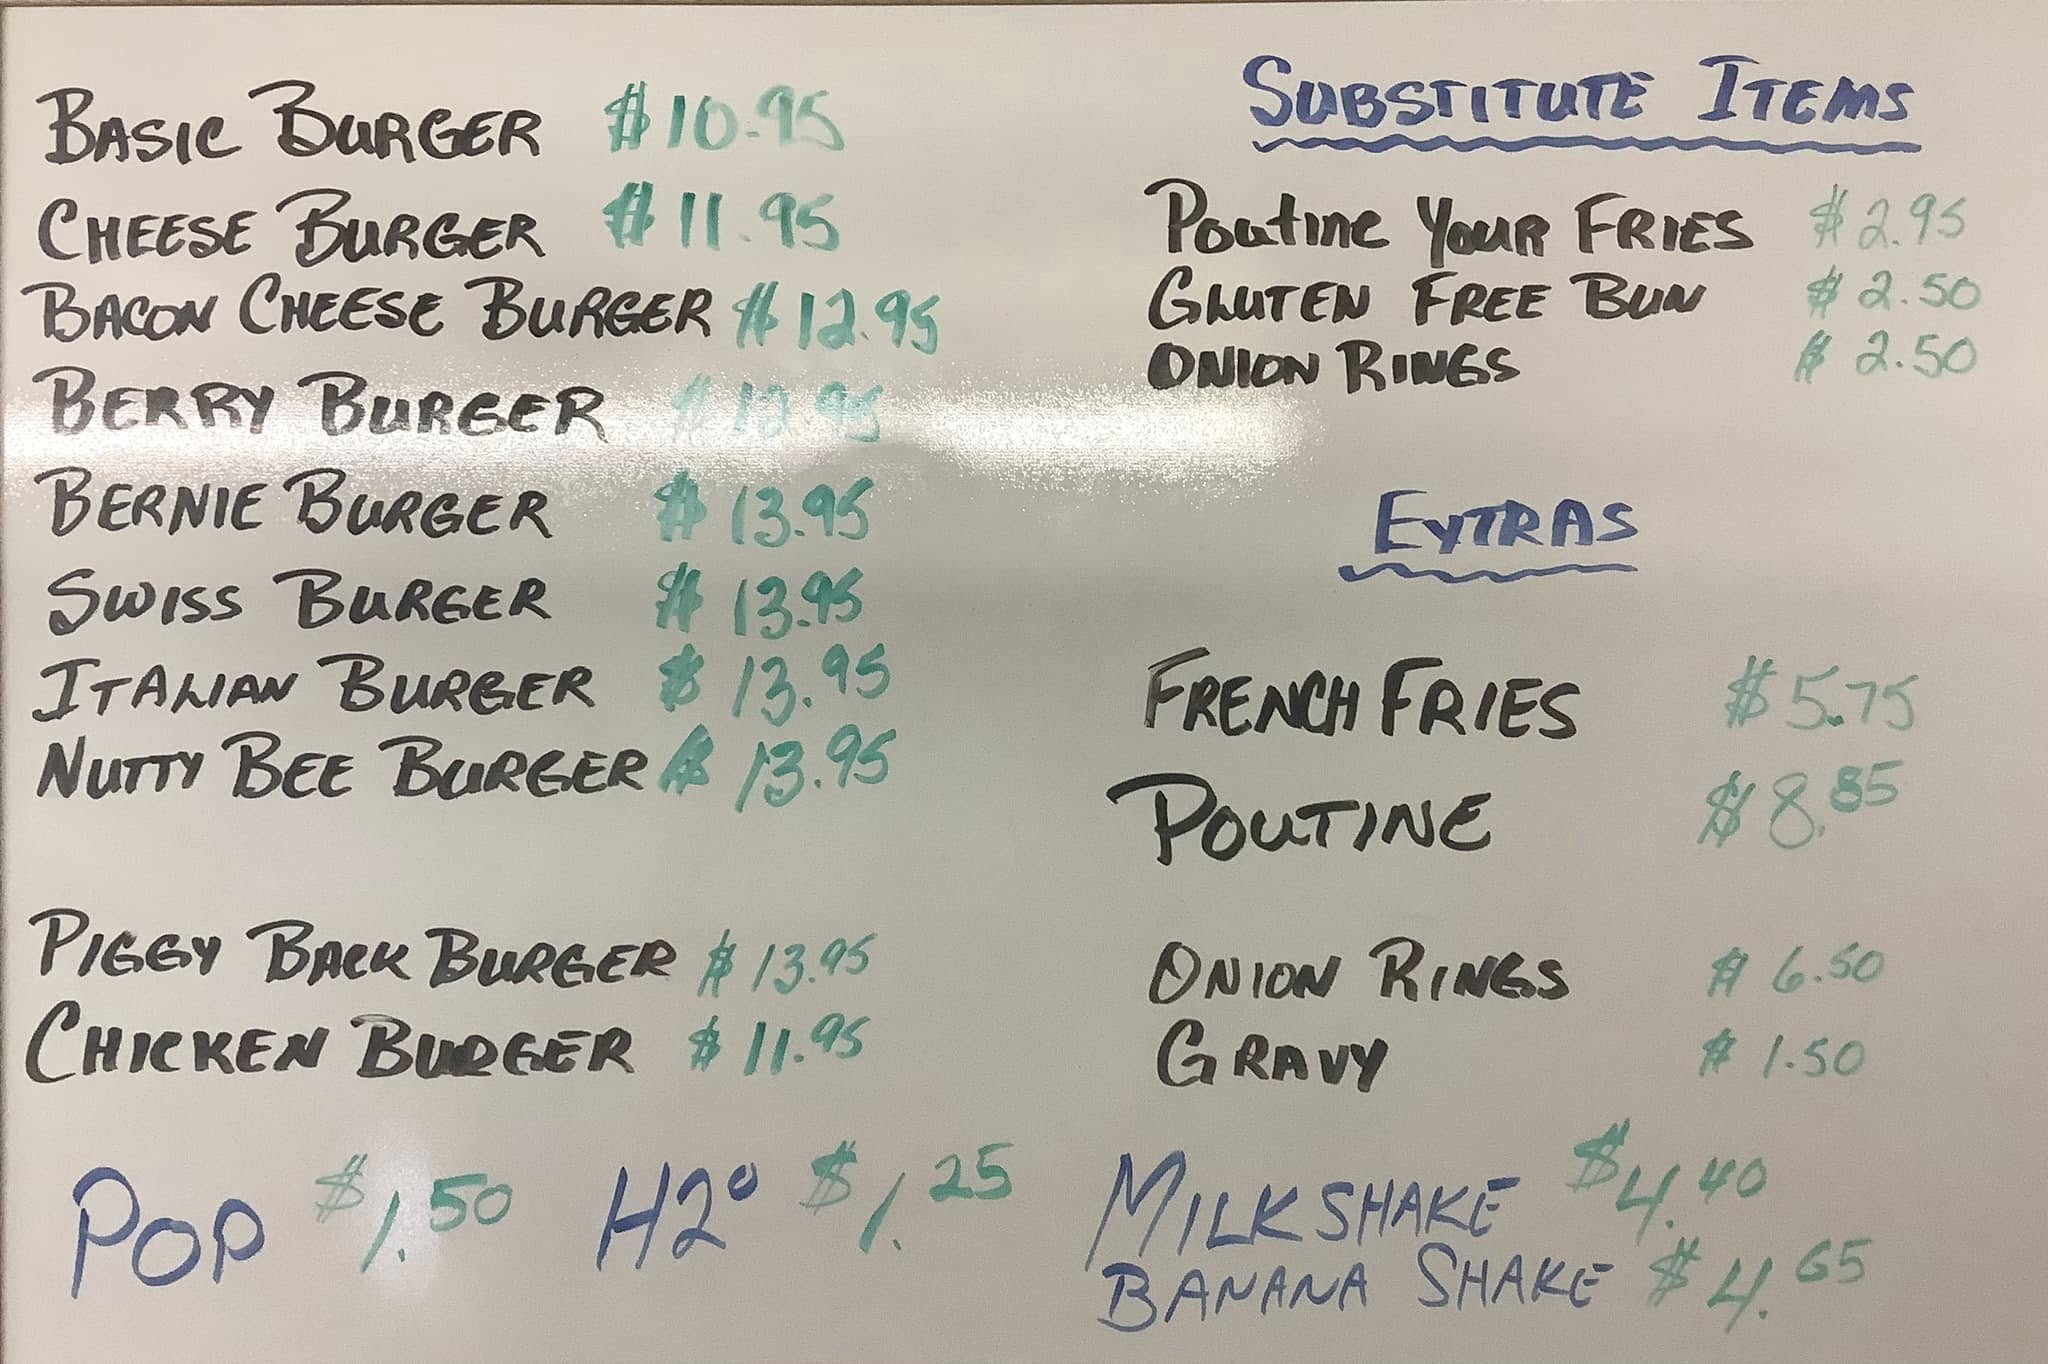 BASIC BURGER $10.95
CHEESE BURGER $11.95
BACON CHEESE BURGER $12.95
BERRY BURGER $12.95
BERNIE BURGER $13.95
SWISS BURGER $13.95
ITALIAN BURGER $13.95
NUTTY BEE BURGER $13.95
PIGGY BACK BURGER $13.95
CHICKEN BURGER $11.95
POP $1.50 H2O $1.25
SUBSTITUTE ITEMS
POUTINE YOUR FRIES $2.95
GLUTEN FREE BUN $2.50
ONION RINGS $2.50
EXTRAS
FRENCH FRIES $5.75
POUTINE $8.85
ONION RINGS $6.50
GRAVY $1.50
MILKSHAKE $4.40
BANANA SHAKE $4.65